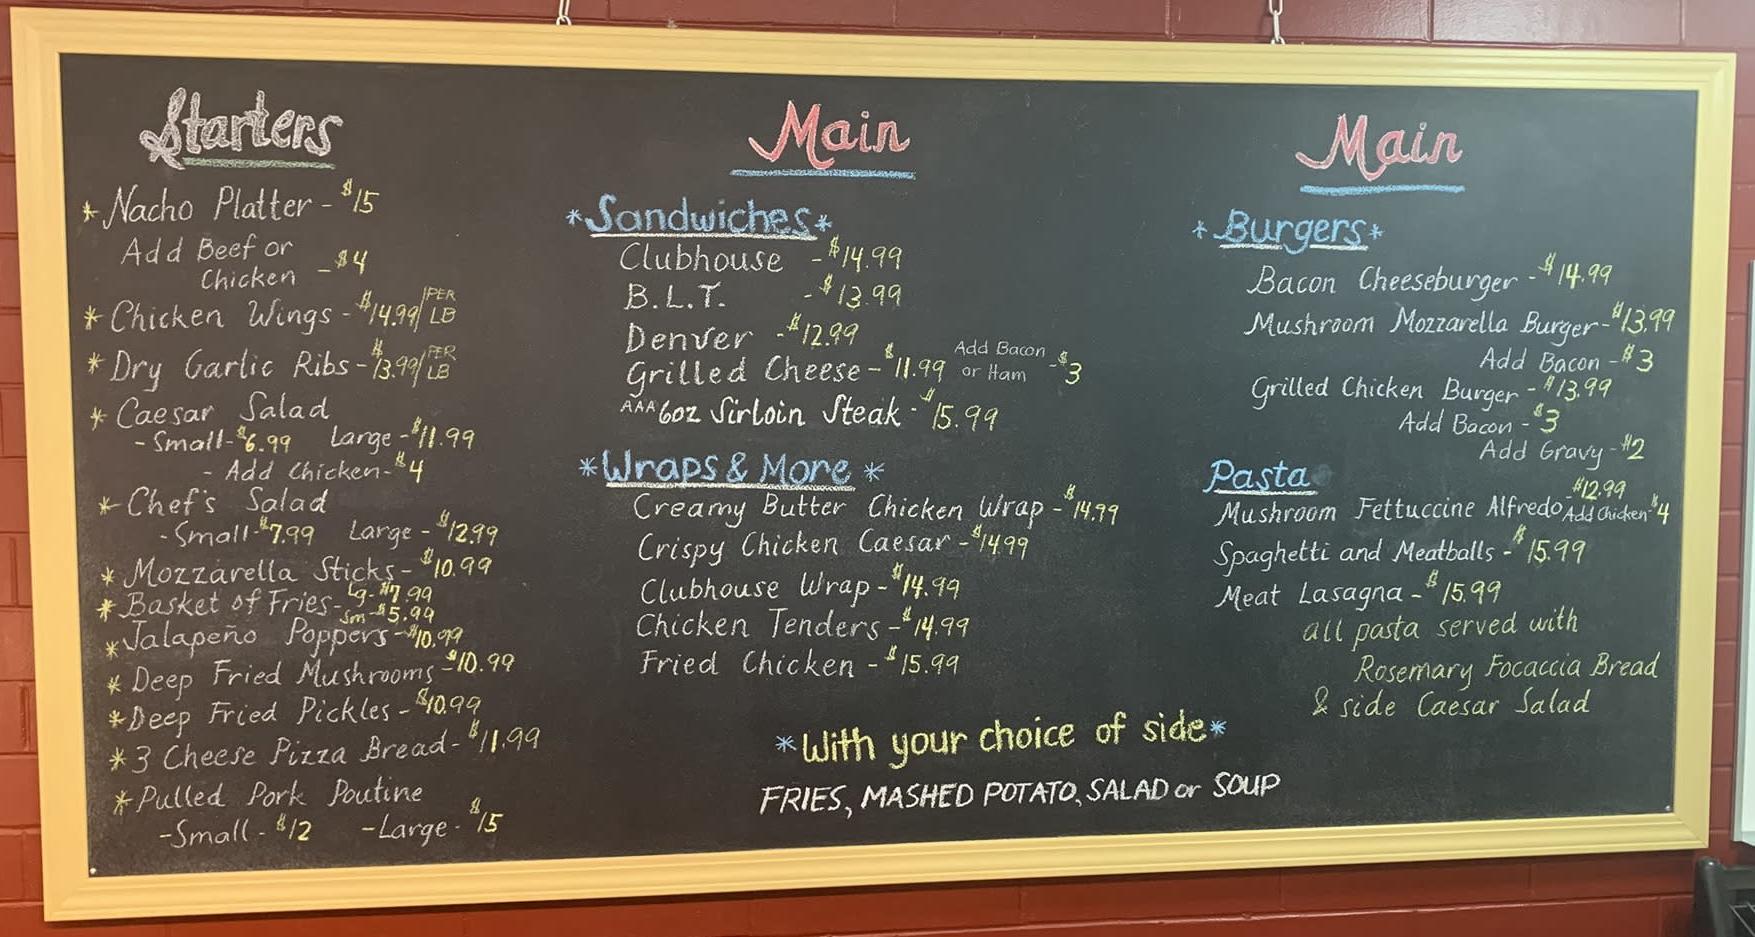 Starters
*Nacho Platter - $15
Add Beef or
Chicken - $4
*Chicken Wings - $14.99/PER LB
*Dry Garlic Ribs - $13.99/PER LB
*Caesar Salad
- Small - $6.99 Large - $11.99
- Add Chicken - $4
*Chef's Salad
- Small - $7.99 Large - $12.99
*Mozzarella Sticks - $10.99
*Basket of Fries - Lg - $7.99
sm - $5.99
*Jalapeño Poppers - $10.99
*Deep Fried Mushrooms - $10.99
*Deep Fried Pickles - $10.99
*3 Cheese Pizza Bread - $11.99
*Pulled Pork Poutine
- Small - $12 - Large - $15
Main
*Sandwiches*
Clubhouse - $14.99
B.L.T. - $13.99
Denver - $12.99
Grilled Cheese - $11.99 Add Bacon or Ham - $3
AAA 6oz Sirloin Steak - $15.99
*Wraps & More*
Creamy Butter Chicken Wrap - $14.99
Crispy Chicken Caesar - $14.99
Clubhouse Wrap - $14.99
Chicken Tenders - $14.99
Fried Chicken - $15.99
*With your choice of side*
FRIES, MASHED POTATO, SALAD or SOUP
Main
*Burgers*
Bacon Cheeseburger - $14.99
Mushroom Mozzarella Burger - $13.99
Add Bacon - $3
Grilled Chicken Burger - $13.99
Add Bacon - $3
Add Gravy - $2
Pasta
Mushroom Fettuccine Alfredo - $12.99 Add Chicken - $4
Spaghetti and Meatballs - $15.99
Meat Lasagna - $15.99
all pasta served with
Rosemary Focaccia Bread
& side Caesar Salad